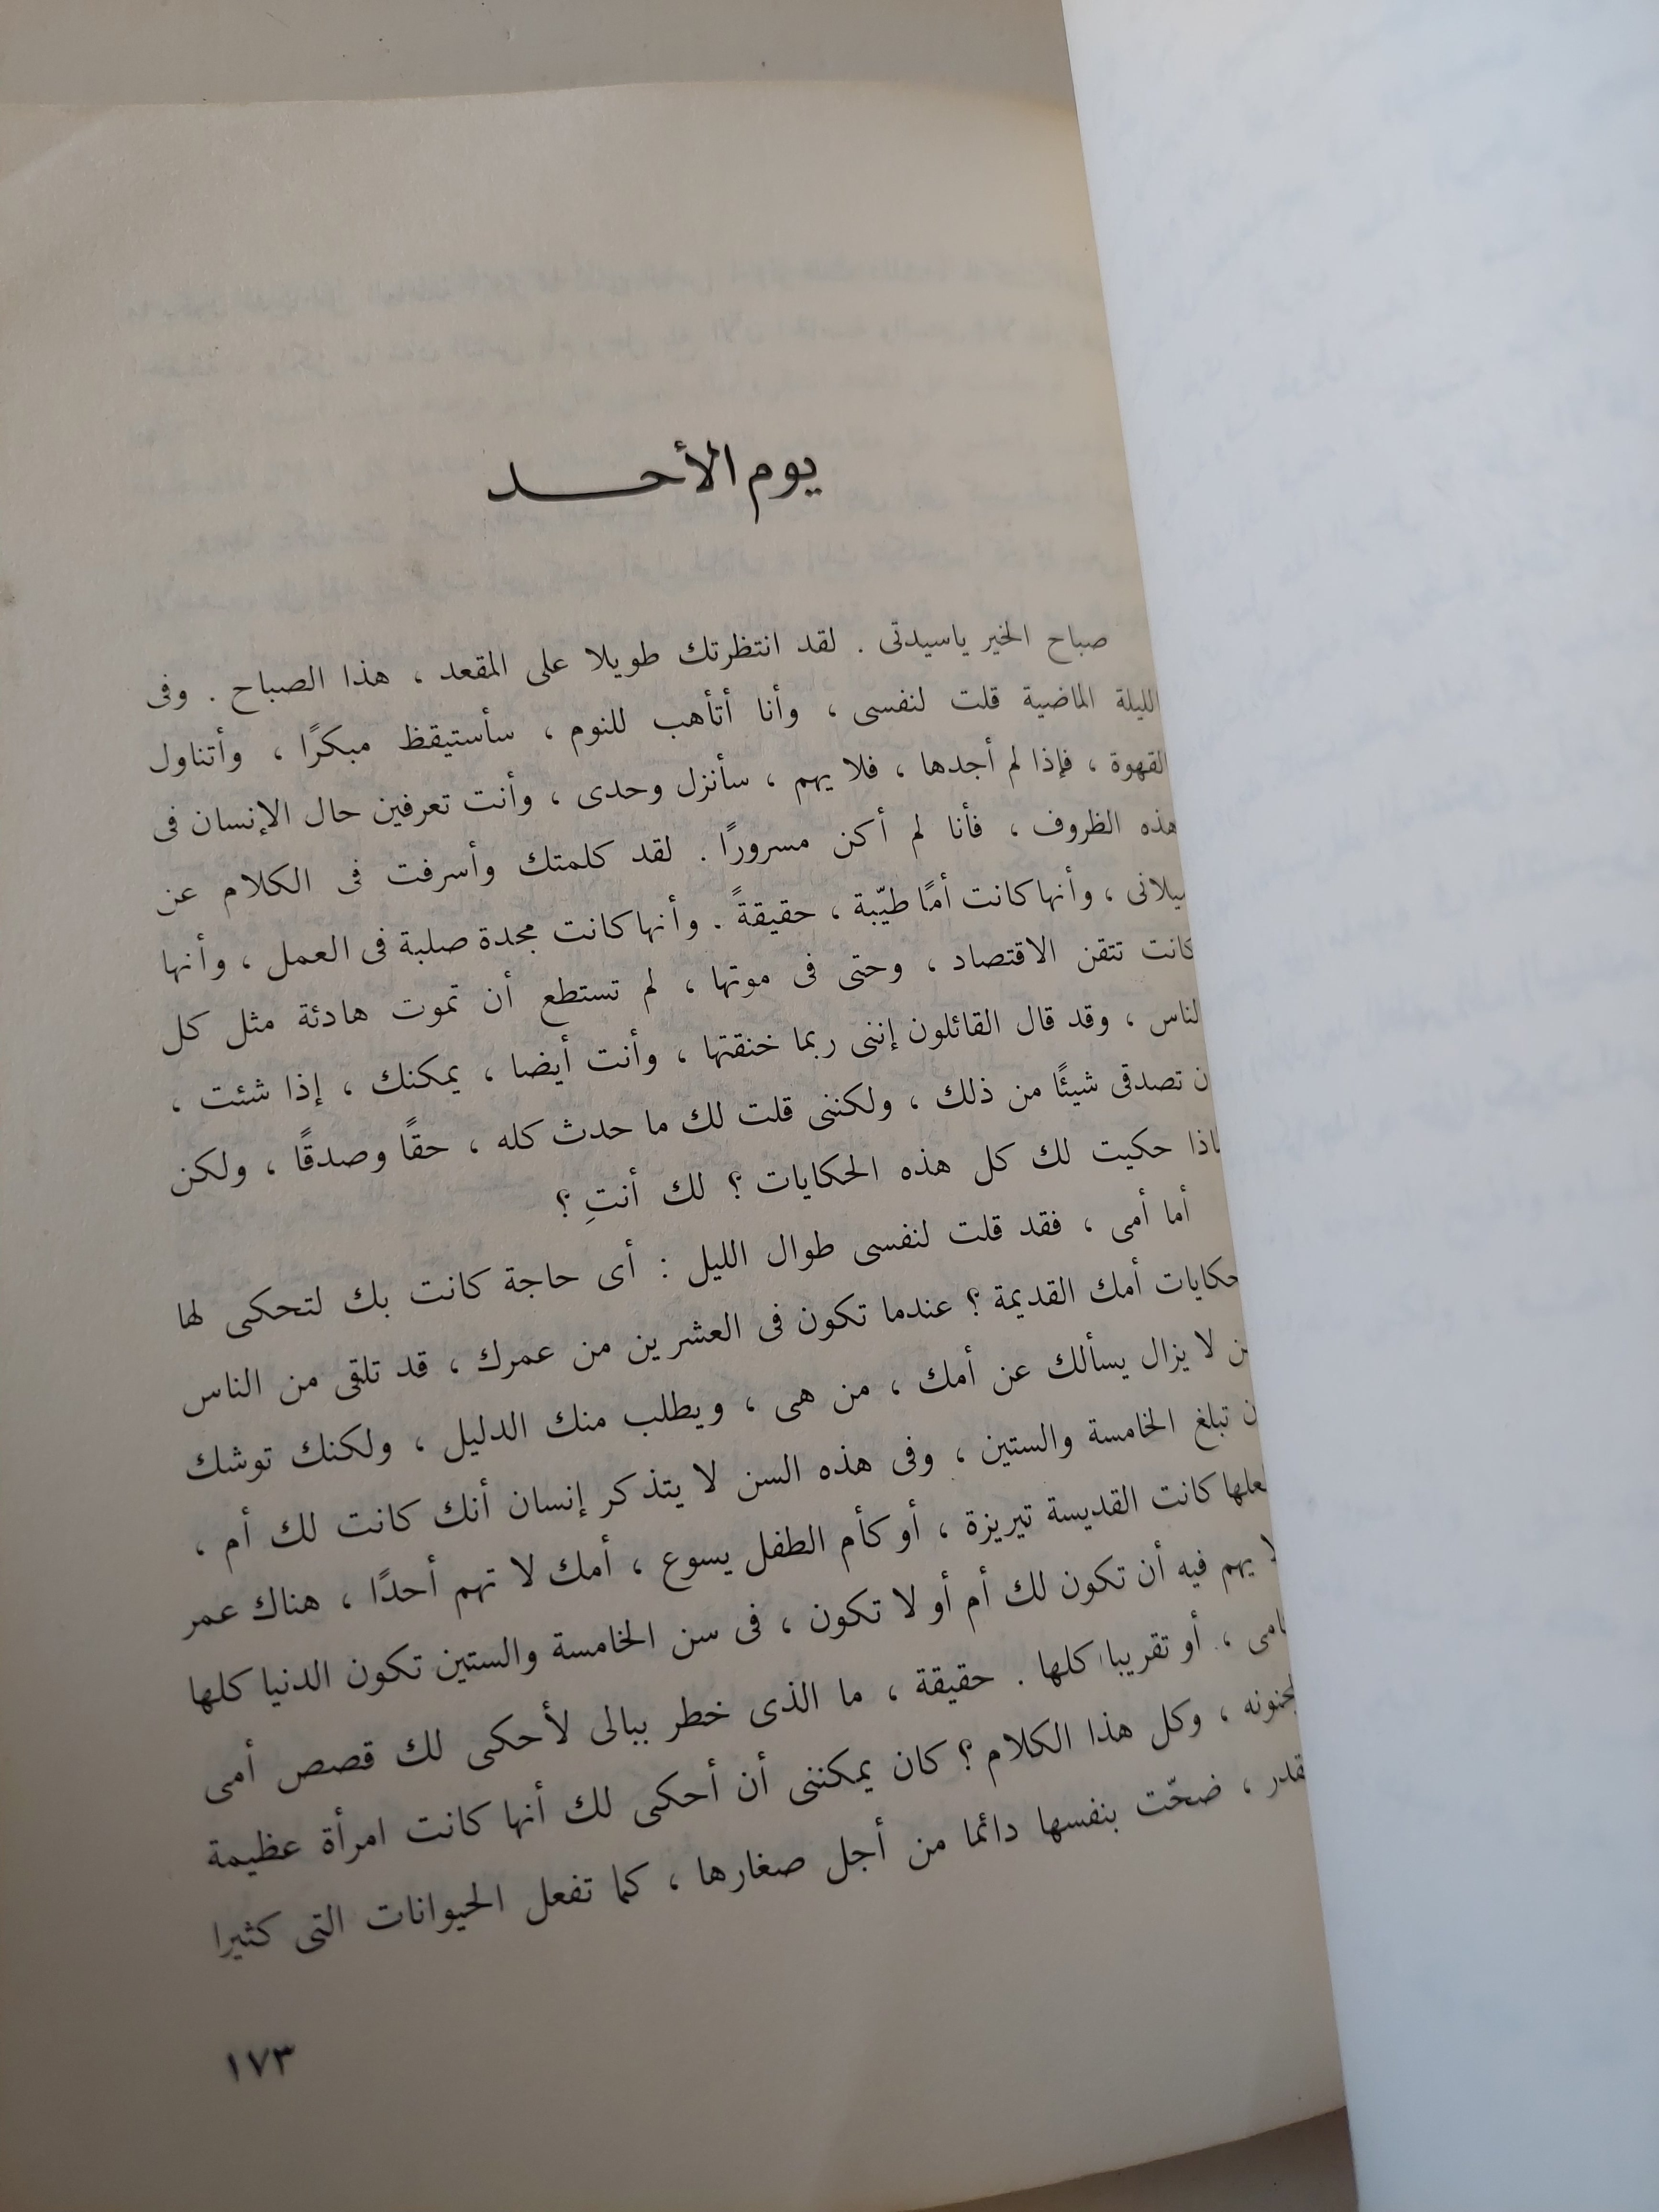 يوم الأحد
صباح الخير ياسيدتى . لقد انتظرتك طويلا على المقعد ، هذا الصباح . وفى
الليلة الماضية قلت لنفسى ، وأنا أتأهب للنوم ، سأستيقظ مبكرًا ، وأتناول
القهوة ، فإذا لم أجدها ، فلا يهم ، سأنزل وحدى ، وأنت تعرفين حال الإنسان فى
هذه الظروف ، فأنا لم أكن مسرورًا . لقد كلمتك وأسرفت فى الكلام عن
، وأنها كانت أمًا طيّبة ، حقيقةً . وأنها كانت مجدة صلبة فى العمل ، وأنها
كانت تتقن الاقتصاد ، وحتى فى موتها ، لم تستطع أن تموت هادئة مثل كل
الناس ، وقد قال القائلون إننى ربما خنقتها ، وأنت أيضا ، يمكنك ، إذا شئت ،
أن تصدقى شيئًا من ذلك ، ولكننى قلت لك ما حدث كله ، حقًا وصدقًا ، ولكن
لماذا حكيت لك كل هذه الحكايات ؟ لك أنتِ ؟
أما أمى ، فقد قلت لنفسى طوال الليل : أى حاجة كانت بك لتحكى لها
حكايات أمك القديمة ؟ عندما تكون فى العشرين من عمرك ، قد تلقى من الناس
من لا يزال يسألك عن أمك ، من هى ، ويطلب منك الدليل ، ولكنك توشك
أن تبلغ الخامسة والستين ، وفى هذه السن لا يتذكر إنسان أنك كانت لك أم ،
لعلها كانت القديسة تيريزة ، أو كأم الطفل يسوع ، أمك لا تهم أحدًا ، هناك عمر
لا يهم فيه أن تكون لك أم أو لا تكون ، فى سن الخامسة والستين تكون الدنيا كلها
، أو تقريبا كلها . حقيقة ، ما الذى خطر ببالى لأحكى لك قصص أمى
، وكل هذا الكلام ؟ كان يمكننى أن أحكى لك أنها كانت امرأة عظيمة
القدر ، ضحّت بنفسها دائما من أجل صغارها ، كما تفعل الحيوانات التى كثيرا
١٧٣